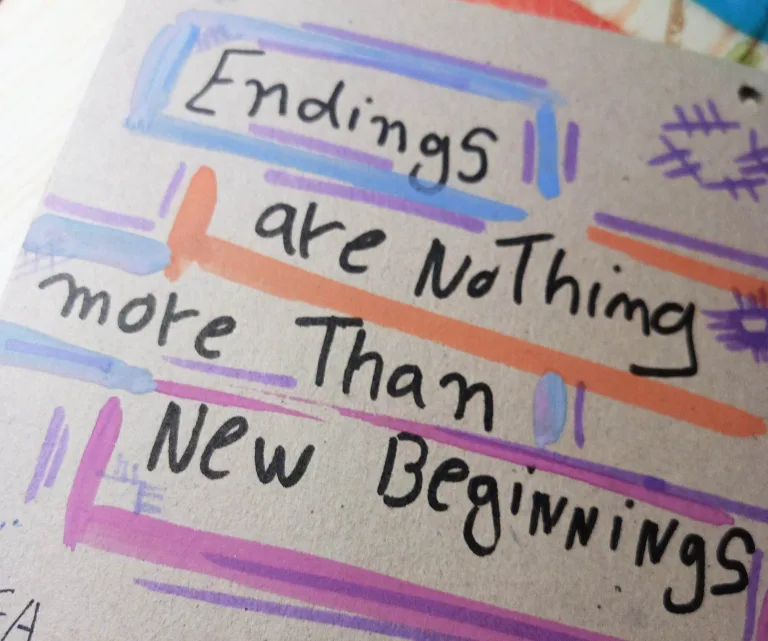 Endings
are NoThing
more Than
New BegiNNiNgs